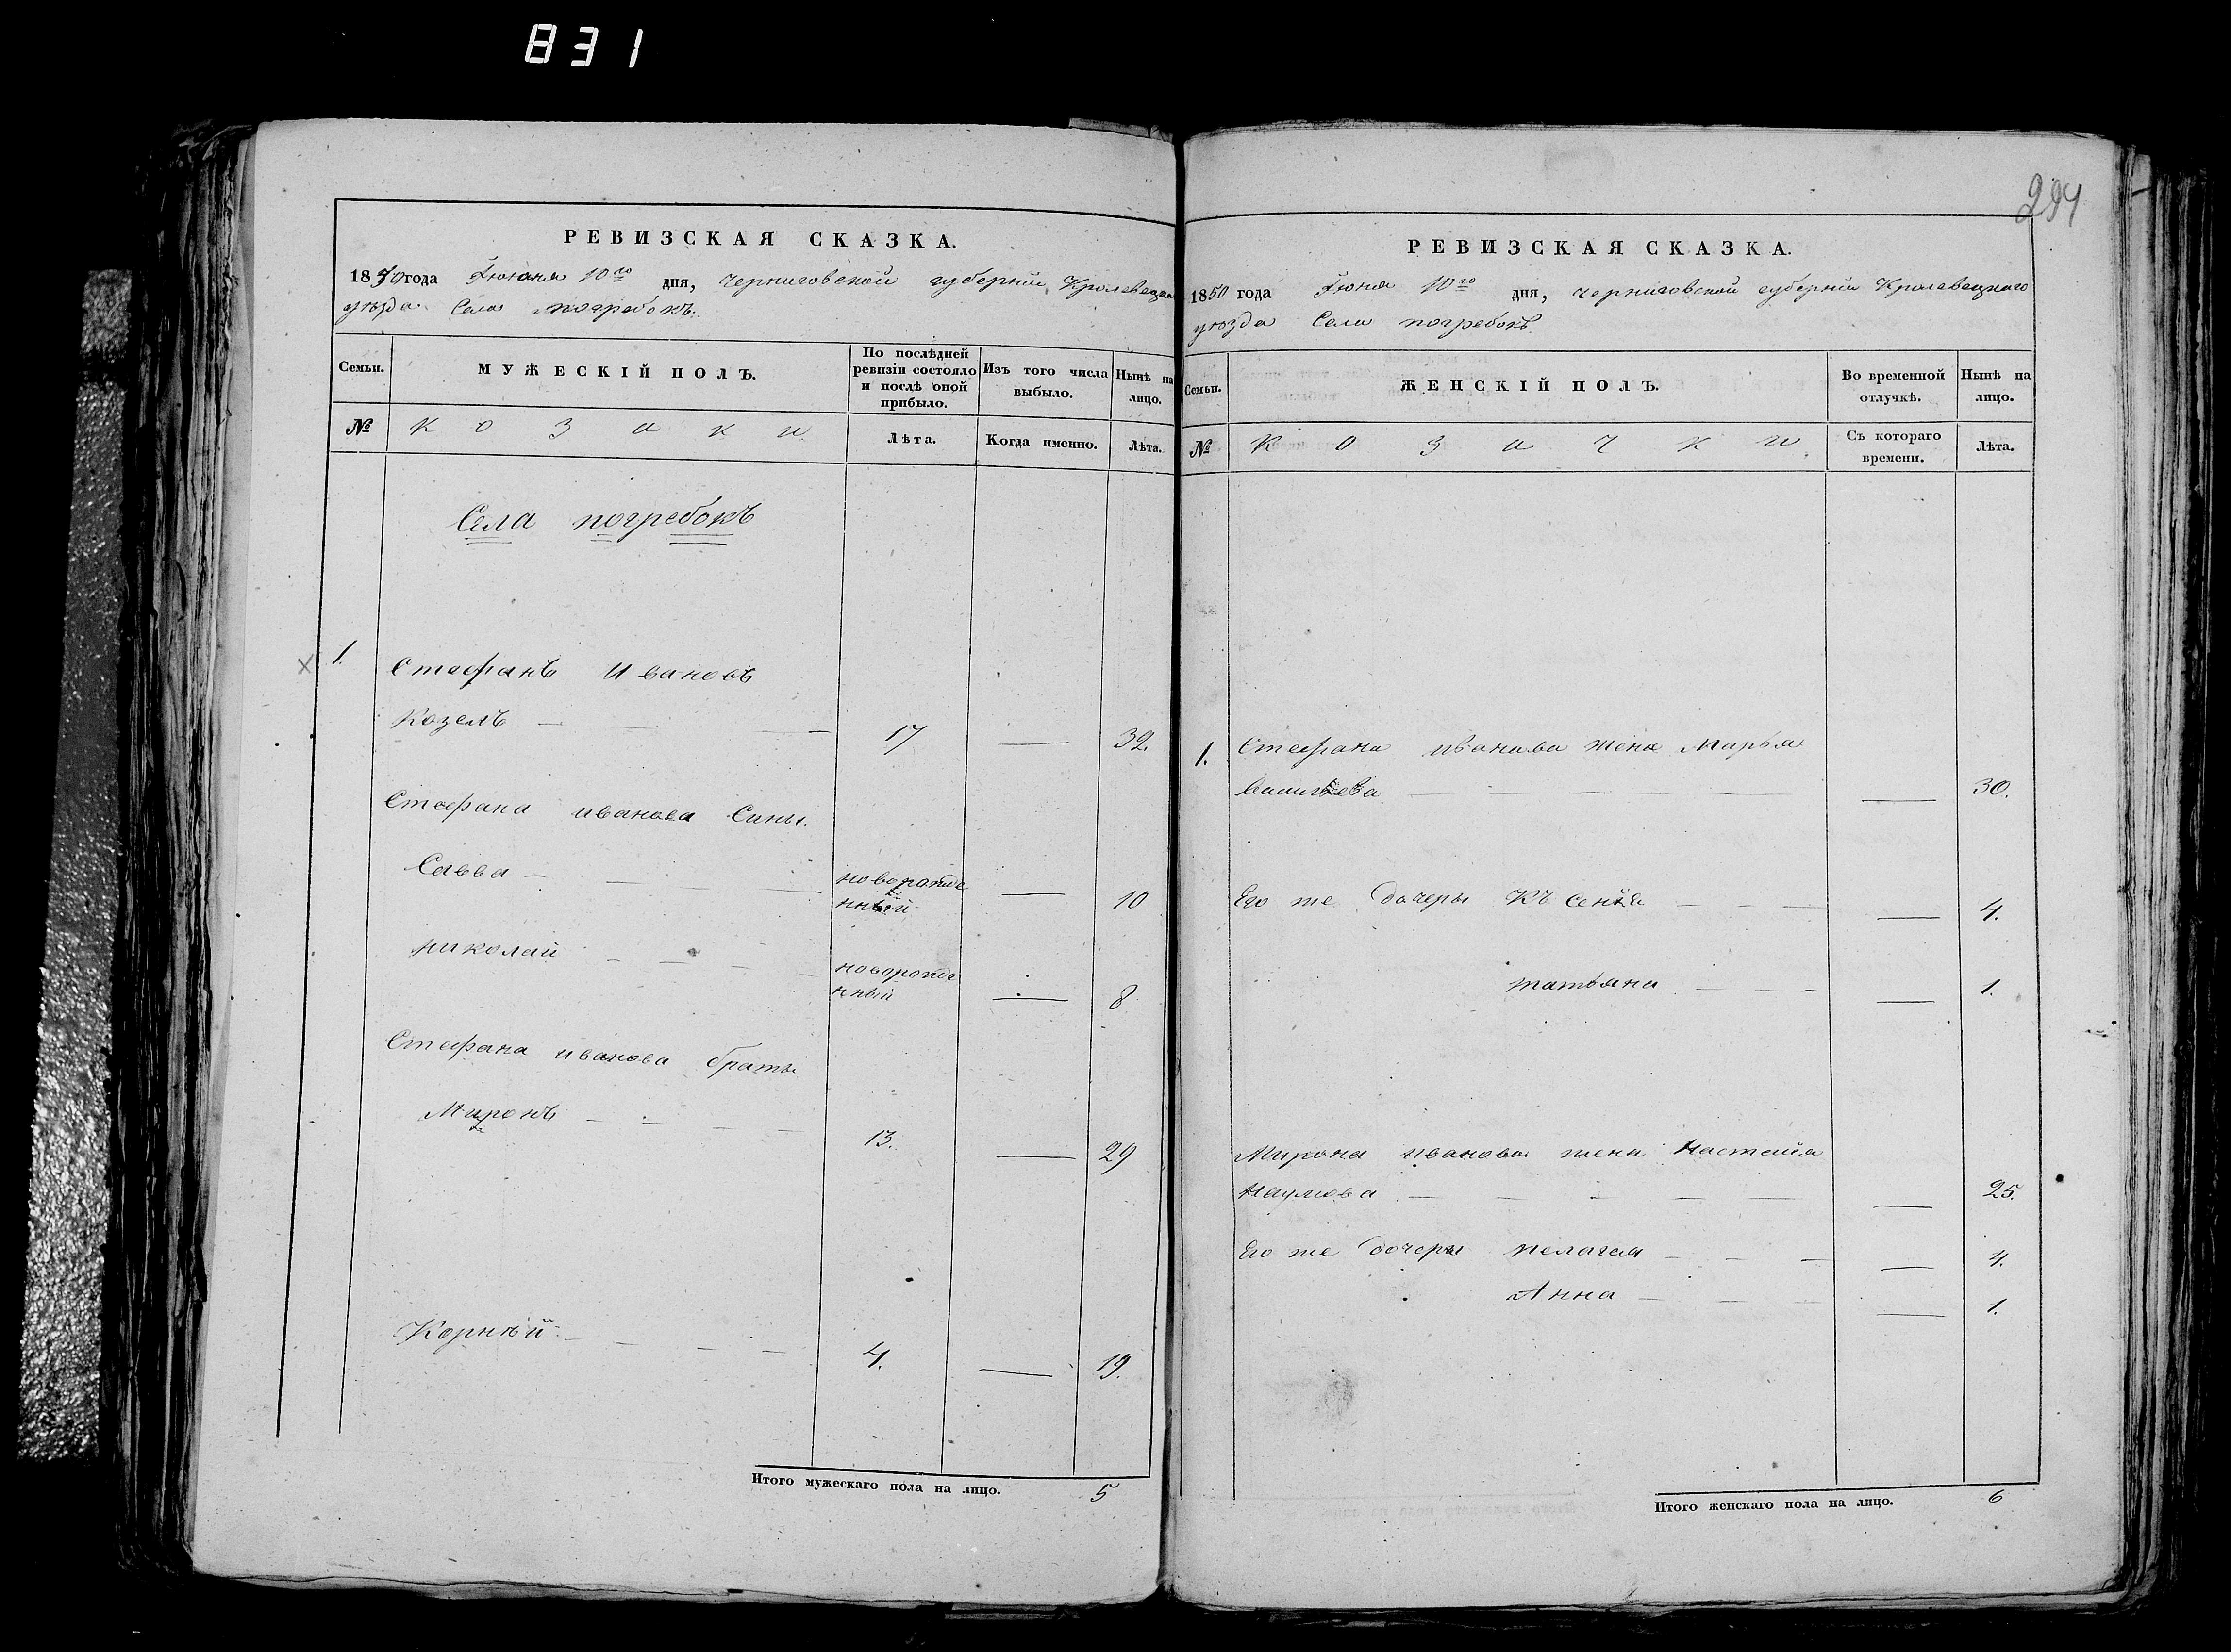 831
294
РЕВИЗСКАЯ СКАЗКА.
1850 года Іюня 10го дня, Черниговской губерніи Кролевецкаго
уѣзда Села погребокъ.
Семьи.
МУЖЕСКІЙ ПОЛЪ.
По послѣдней ревизіи состояло и послѣ оной прибыло.
Изъ того числа выбыло.
Нынѣ на лицо.
№
Козаки
Лѣта.
Когда именно.
Лѣта.
Села погребокъ
1.
Стефанъ Ивановъ
Козелъ — — 17 — 32.
Стефана иванова Сины.
Савва — — — новорожде
нный — 10
николай — — — — новорожде
нный — 8
Стефана иванова браты
Миронъ — — — — 13. — 29
Корнѣй — — — — 4. — 19.
Итого мужескаго пола на лицо. 5
РЕВИЗСКАЯ СКАЗКА.
1850 года Іюня 10го дня, Черниговской губерніи Кролевецкаго
уѣзда Села погребокъ.
Семьи.
ЖЕНСКІЙ ПОЛЪ.
Во временной отлучкѣ.
Нынѣ на лицо.
№
Козачки
Съ котораго времени.
Лѣта.
1. Стефана иванова жена Марья
— — — — — — 30.
Его же дочеры Ксенія — — — — 4.
татьяна — — — — 1.
Мирона иванова жена Настасия
Наумова — — — — — — 25.
Его же дочеры пелагея — — — — 4.
Анна — — — — 1.
Итого женскаго пола на лицо. 6